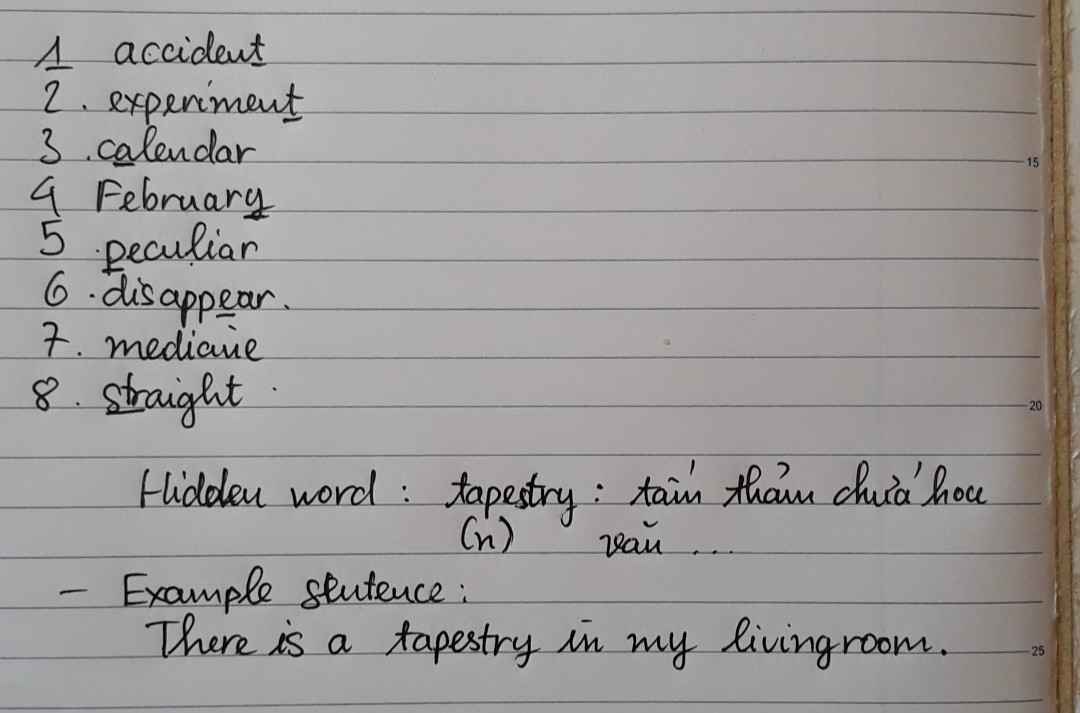 1 accident
2. experiment
3. calendar
15
4 February
5. peculiar
6. disappear.
7. medicine
8. straight
20
Hidden word: tapestry: tấm thảm chứa hoa
(n) văn ...
- Example sentence:
There is a tapestry in my livingroom.
25